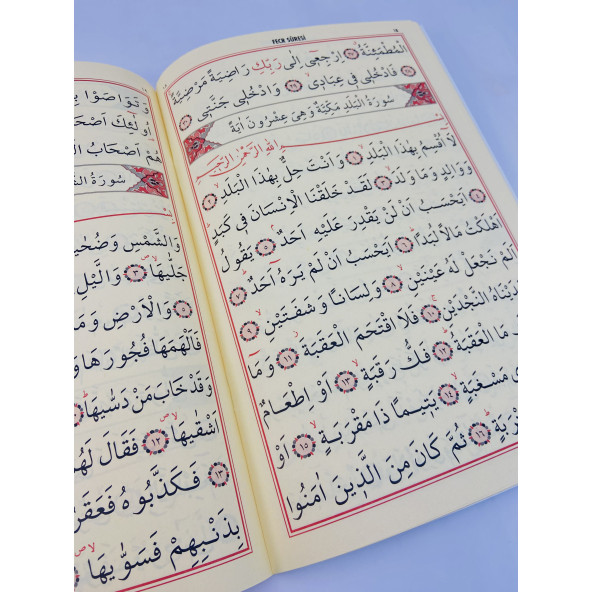 FECR SÛRESİ
الْمُطْمَئِنَّةُ ﴿٢٧﴾ اِرْجِعٖٓي اِلٰى رَبِّكِ رَاضِيَةً مَرْضِيَّةً
﴿٢٨﴾ فَادْخُلٖي فٖي عِبَادٖي ﴿٢٩﴾ وَادْخُلٖي جَنَّتٖي ﴿٣٠﴾
سُورَةُ الْبَلَدِ مَكِّيَّةٌ وَهِيَ عِشْرُونَ اٰيَةً
اللهِ الرَّحْمٰنِ الرَّحٖيمِ
لَٓا اُقْسِمُ بِهٰذَا الْبَلَدِ ﴿١﴾ وَاَنْتَ حِلٌّ بِهٰذَا الْبَلَدِ ﴿٢﴾
وَوَالِدٍ وَمَا وَلَدَ ﴿٣﴾ لَقَدْ خَلَقْنَا الْاِنْسَانَ فٖي كَبَدٍ
﴿٤﴾ اَيَحْسَبُ اَنْ لَنْ يَقْدِرَ عَلَيْهِ اَحَدٌ ﴿٥﴾ يَقُولُ
اَهْلَكْتُ مَالًا لُبَدًا ﴿٦﴾ اَيَحْسَبُ اَنْ لَمْ يَرَهُٓ اَحَدٌ ﴿٧﴾
اَلَمْ نَجْعَلْ لَهُ عَيْنَيْنِ ﴿٨﴾ وَلِسَانًا وَشَفَتَيْنِ ﴿٩﴾
دَيْنَاهُ النَّجْدَيْنِ ﴿١٠﴾ فَلَا اقْتَحَمَ الْعَقَبَةَ ﴿١١﴾ وَمَٓا
مَا الْعَقَبَةُ ﴿١٢﴾ فَكُّ رَقَبَةٍ ﴿١٣﴾ اَوْ اِطْعَامٌ
ي مَسْغَبَةٍ ﴿١٤﴾ يَتٖيمًا ذَا مَقْرَبَةٍ ﴿١٥﴾ اَوْ
رَبَةٍ ﴿١٦﴾ ثُمَّ كَانَ مِنَ الَّذٖينَ اٰمَنُوا
وَتَوَاصَوْا
اُولٰٓئِكَ اَصْحَ
هُمْ اَصْحَابُ
سُورَةُ
وَالشَّمْسِ وَضُحٰيهَا
جَلّٰيهَا ﴿٣﴾ وَالَّيْلِ
﴿٥﴾ وَالْاَرْضِ وَمَا
فَاَلْهَمَهَا فُجُورَهَا وَ
وَقَدْ خَابَ مَنْ دَسّٰيهَا
اَشْقٰيهَا ﴿١٢﴾ فَقَالَ لَهُ
﴿١٣﴾ فَكَذَّبُوهُ فَعَقَرُ
بِذَنْبِهِمْ فَسَوّٰيهَا